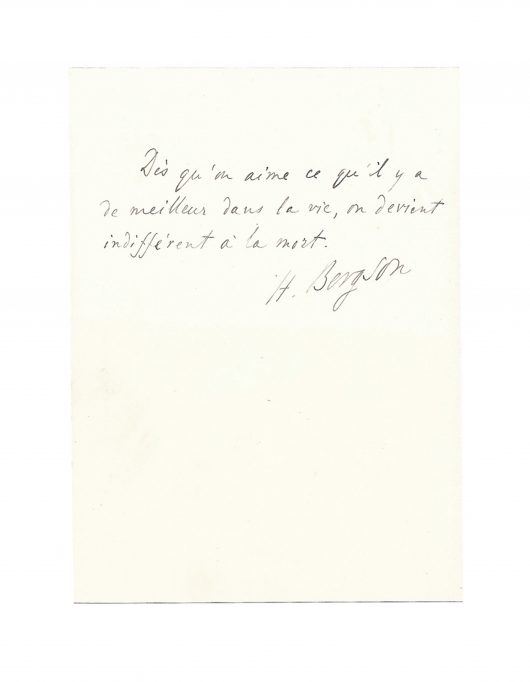 Dès qu'on aime ce qu'il y a
de meilleur dans la vie, on devient
indifférent à la mort.
H. Bergson